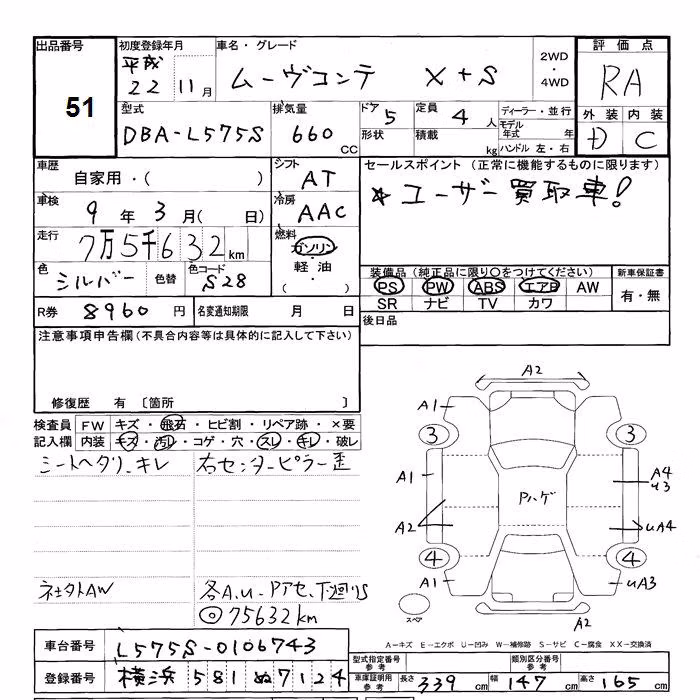 出品番号
51
初度登録年月
平成
22 11月
車名・グレード
ムーヴコンテ X+S
2WD
・
4WD
評価点
RA
外装 内装
D C
型式
DBA-L575S
排気量
660 CC
ドア 5
形状
定員 4 人
積載 kg
ディーラー・並行
モデル年式 年
ハンドル 左・右
車歴
自家用・( )
車検
9年 3月( 日)
走行
7万5千632 km
色
シルバー
色替
色コード
S28
シフト
AT
冷房
AAC
燃料
ガソリン
・
軽油
・
( )
セールスポイント (正常に機能するものに限ります)
☆ユーザー買取車!
装備品 (純正品に限り○をつけてください)
PS PW ABS エアB AW
SR ナビ TV カワ
新車保証書
有・無
後日品
R券 8960 円
名変通知期限 月 日
注意事項申告欄(不具合内容等は具体的に記入して下さい)
修復歴 有 〔箇所 〕
検査員記入欄
FW キズ・飛石・ヒビ割・リペア跡・×要
内装 キズ・汚レ・コゲ・穴・スレ・キレ・破レ
シートヘタリ、キレ
右センターピラー歪
ネセタトAW
各A.u.
◎75632km
A2
A1
3
3
A1
A4
u3
Pハゲ
A2
uA4
4
4
A1
uA3
A2
スペア
A－キズ E－エクボ U－凹み W－補修跡 S－サビ C－腐食 XX－交換済
車台番号 L575S-0106743
登録番号 横浜 581 ぬ 7124
型式指定番号
参考
類別区分番号
参考
車庫証明用
参考
長さ 339 cm 幅 147 cm 高さ 165 cm